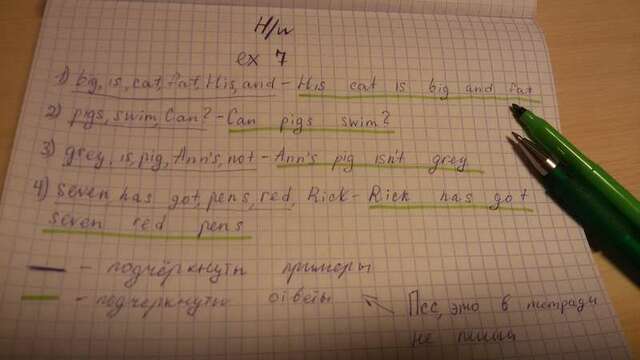 H/w
ex 7
1) big, is, cat, fat, His, and - His cat is big and fat
2) pigs, swim, Can? - Can pigs swim?
3) grey, is, pig, Ann's, not - Ann's pig isn't grey
4) seven has got, pens, red, Rick - Rick has got
seven red pens
- подчёркнуты примеры
- подчеркнуты ответы
Псс, это в тетради
не пиши